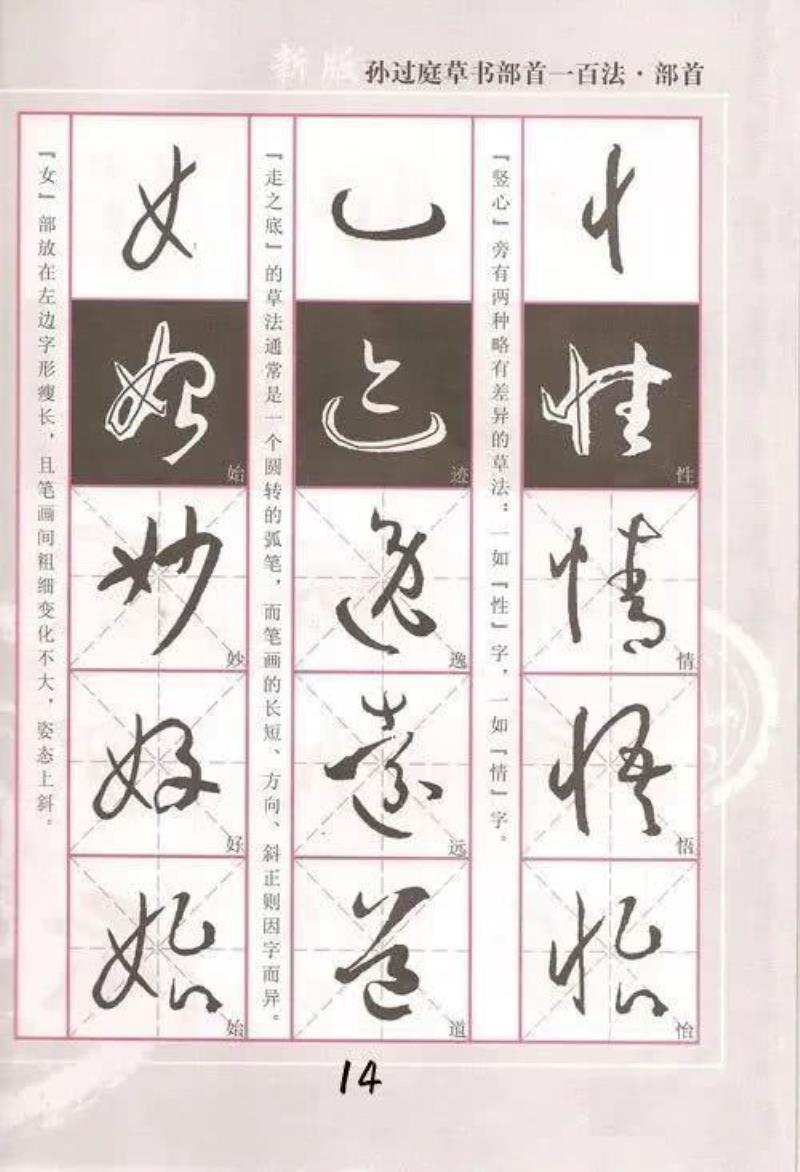 新版 孙过庭草书部首一百法·部首
『竖心』旁有两种略有差异的草法：一如『性』字，一如『情』字。
忄
性
情
悟
怡
『走之底』的草法通常是一个圆转的弧笔，而笔画的长短、方向、斜正则因字而异。
辶
迹
逸
远
道
『女』部放在左边字形瘦长，且笔画间粗细变化不大，姿态上斜。
女
始
妙
好
始
14